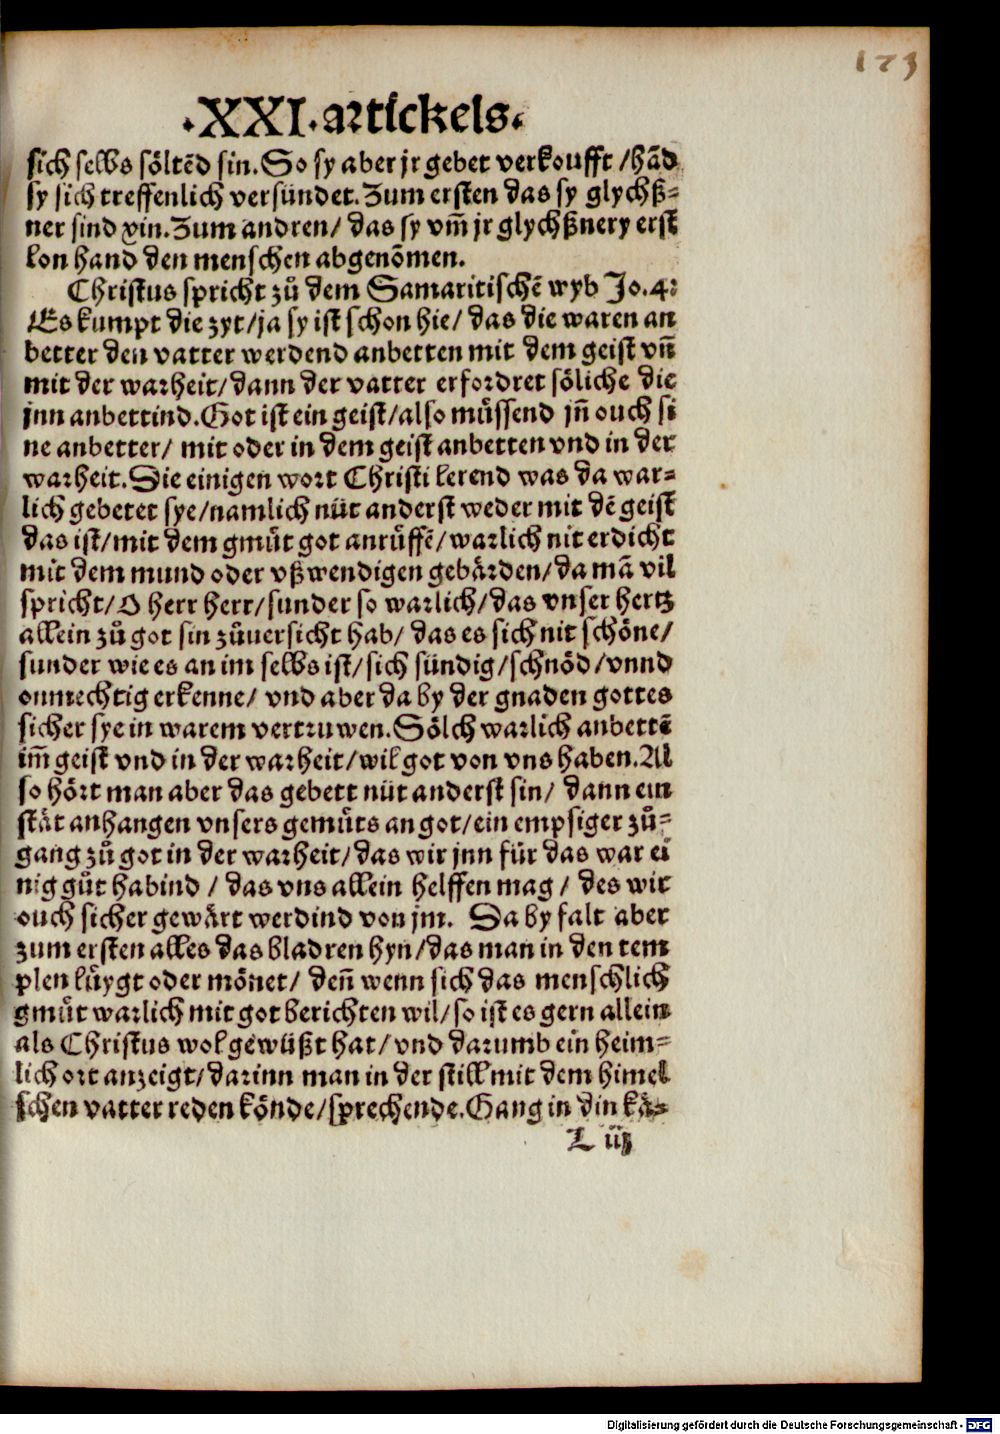 173
·XXI·artickels·
sich selbs söltēd sin. So sy aber jr gebet verkoufft /hād
sy sich treffenlich versündet. Zum ersten das sy glychß-
ner sind xin. Zum andren/ das sy vm̄ jr glychßnery erst
lon hand den menschen abgenōmen.
Christus spricht zů dem Samaritischē wyb Jo.4:
Es kumpt die zyt/ja sy ist schon hie/ das die waren an
better den vatter werdend anbetten mit dem geist vn̄
mit der warheit/dann der vatter erfordret söliche die
jnn anbettind. Got ist ein geist/also müssend jn̄ ouch si
ne anbetter/ mit oder in dem geist anbetten vnd in der
warheit. Die einigen wort Christi lerend was da war-
lich gebetet sye/namlich nüt anderst weder mit dē geist
das ist/mit dem gmüt got anrůffē/warlich nit erdicht
mit dem mund oder vßwendigen gebärden/da mā vil
spricht/O herr herr/sunder so warlich/das vnser hertz
allein zů got sin zůuersicht hab/ das es sich nit schöne/
sunder wie es an im selbs ist/sich sündig/schnöd/vnnd
onmechtig erkenne/ vnd aber da by der gnaden gottes
sicher sye in warem vertruwen. Sölch warlich anbettē
im̄ geist vnd in der warheit/wil got von vns haben. Al
so hört man aber das gebett nüt anderst sin/ dann ein
stät anhangen vnsers gemüts an got/ein empsiger zů-
gang zů got in der warheit/das wir jnn für das war ei
nig gůt habind / das vns allein helffen mag / des wir
ouch sicher gewärt werdind von jm. Da by falt aber
zum ersten alles das bladren hyn/das man in den tem
plen lüygt oder mönet/ den̄ wenn sich das menschlich
gmüt warlich mit got berichten wil/so ist es gern allein
als Christus wol gewüßt hat/vnd darumb ein heim-
lich ort anzeigt/darinn man in der still mit dem himel
schen vatter reden könde/sprechende. Gang in din kä-
L iij
Digitalisierung gefördert durch die Deutsche Forschungsgemeinschaft - DFG